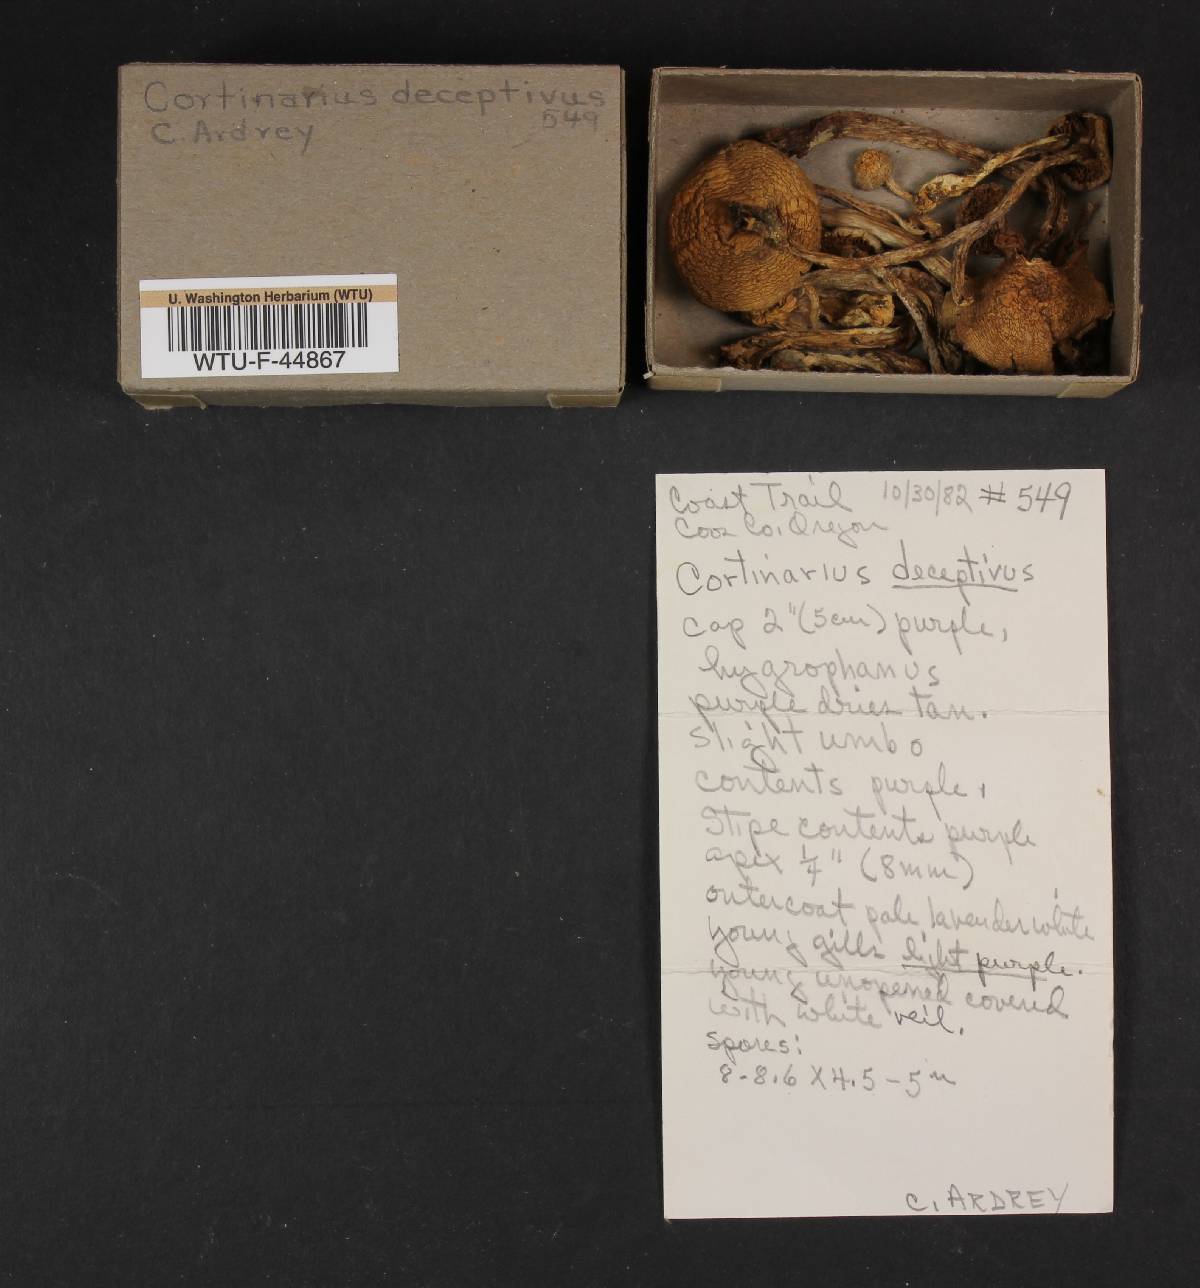 Cortinarius deceptivus
549
C. Ardrey
U. Washington Herbarium (WTU)
WTU-F-44867
Coast Trail 10/30/82 # 549
Coos Co, Oregon
Cortinarius deceptivus
cap 2" (5cm) purple,
hygrophanus
purple dries tan.
slight umbo
contents purple,
Stipe contents purple
apex 1/4" (8mm)
outercoat pale lavender white
young gills light purple.
young unopened covered
with white veil.
Spores:
8-8.6 X 4.5-5 m
C. ARDREY